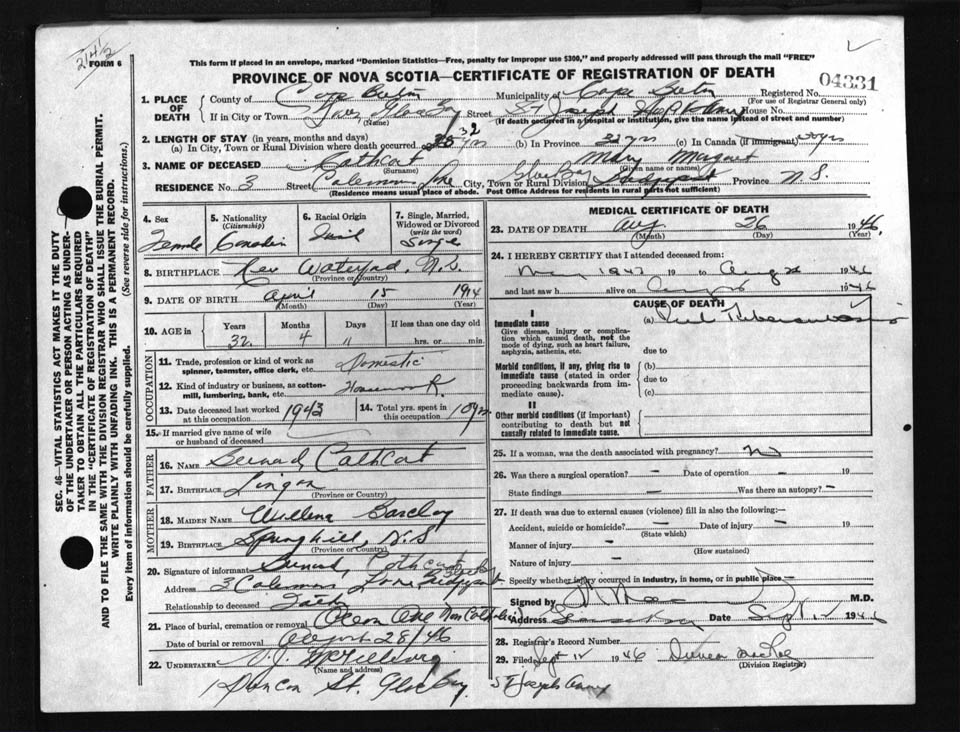 2412
FORM 6
This form if placed in an envelope, marked "Dominion Statistics—Free, penalty for improper use $300," and properly addressed will pass through the mail "FREE"
PROVINCE OF NOVA SCOTIA—CERTIFICATE OF REGISTRATION OF DEATH
04331
1. PLACE OF DEATH
County of Cape Breton Municipality of Cape Breton Registered No.
(For use of Registrar General only)
If in City or Town Glace Bay Street St Joseph Hospital Annex House No.
(Name) (If death occurred in a hospital or institution, give the name instead of street and number)
2. LENGTH OF STAY (in years, months and days)
(a) In City, Town or Rural Division where death occurred 32 yrs (b) In Province 32 yrs (c) In Canada (if immigrant) yrs
3. NAME OF DECEASED Cathcart Mary Margaret
(Surname) (Given name or names)
RESIDENCE No. 3 Street Coleman Lane City, Town or Rural Division Glace Bay Province N. S.
(Residence means usual place of abode. Post Office Address for residents in rural parts not sufficient)
4. Sex
Female
5. Nationality
(Citizenship)
Canadian
6. Racial Origin
7. Single, Married, Widowed or Divorced
(write the word)
Single
8. BIRTHPLACE New Waterford, N.S.
(Province or Country)
9. DATE OF BIRTH April 15 1914
(Month) (Day) (Year)
10. AGE in Years Months Days If less than one day old
32 4 " hrs. or min.
OCCUPATION
11. Trade, profession or kind of work as spinner, teamster, office clerk, etc. Domestic
12. Kind of industry or business, as cotton-mill, lumbering, bank, etc. Housework
13. Date deceased last worked at this occupation 1943
14. Total yrs. spent in this occupation 10 yrs
15. If married give name of wife or husband of deceased
FATHER
16. NAME Bernard Cathcart
17. BIRTHPLACE Lingan
(Province or Country)
MOTHER
18. MAIDEN NAME Willena Barclay
19. BIRTHPLACE Springhill, N.S
(Province or Country)
20. Signature of informant Bernard Cathcart
Address 3 Coleman Lane
Relationship to deceased Father
21. Place of burial, cremation or removal
Date of burial or removal August 28/46
22. UNDERTAKER V.J. McGillivray
(Name and address)
Duncan St. Glace Bay
MEDICAL CERTIFICATE OF DEATH
23. DATE OF DEATH Aug 26 1946
(Month) (Day) (Year)
24. I HEREBY CERTIFY that I attended deceased from:
May 19 to Aug 1946
and last saw h alive on Aug 1946
CAUSE OF DEATH
I
Immediate cause
Give disease, injury or complication which caused death, not the mode of dying, such as heart failure, asphyxia, asthenia, etc.
(a) Tuberculosis
due to
Morbid conditions, if any, giving rise to immediate cause (stated in order proceeding backwards from immediate cause).
(b)
due to
(c)
II
Other morbid conditions (if important) contributing to death but not causally related to immediate cause.
25. If a woman, was the death associated with pregnancy? No
26. Was there a surgical operation? — Date of operation — 19
State findings — Was there an autopsy? —
27. If death was due to external causes (violence) fill in also the following:—
Accident, suicide or homicide? — Date of injury — 19
(State which)
Manner of injury —
(How sustained)
Nature of injury —
Specify whether injury occurred in industry, in home, or in public place —
Signed by M.D.
Address Date Sept 12 1946
28. Registrar's Record Number
29. Filed Sept 12 1946
(Division Registrar)
St Joseph Annex
SEC. 46—VITAL STATISTICS ACT MAKES IT THE DUTY
OF THE UNDERTAKER OR PERSON ACTING AS UNDER-
TAKER TO OBTAIN ALL THE PARTICULARS REQUIRED
IN THE "CERTIFICATE OF REGISTRATION OF DEATH"
AND TO FILE THE SAME WITH THE DIVISION REGISTRAR WHO SHALL ISSUE THE BURIAL PERMIT.
WRITE PLAINLY WITH UNFADING INK. THIS IS A PERMANENT RECORD.
Every item of information should be carefully supplied. (See reverse side for instructions.)